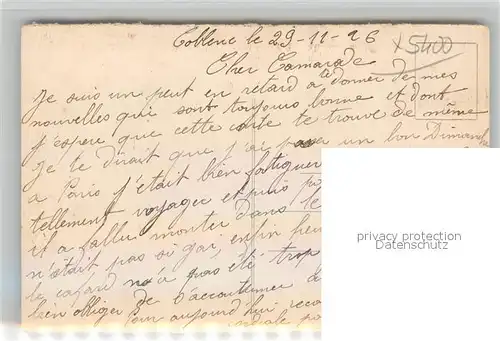 Coblenc le 29-11-26
x 5400
Cher Camarade
Je suis un peut en retard a donner de mes
nouvelles qui sont toujours bonne et dont
j'espere que cette carte te trouve de même
Je te dirait que j'ai un bon Dimanche
a Paris j'était bien fatiguer
tellement voyager et puis
il a fallu monter dans le
n'était pas si gai, enfin
le cafard n'a pas été trop
bien obliger de s'accoutumer
Pour aujourd'hui
privacy protection
Datenschutz